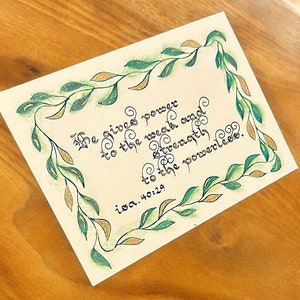 He gives power
to the weak and
strength
to the powerless.
isa. 40:29